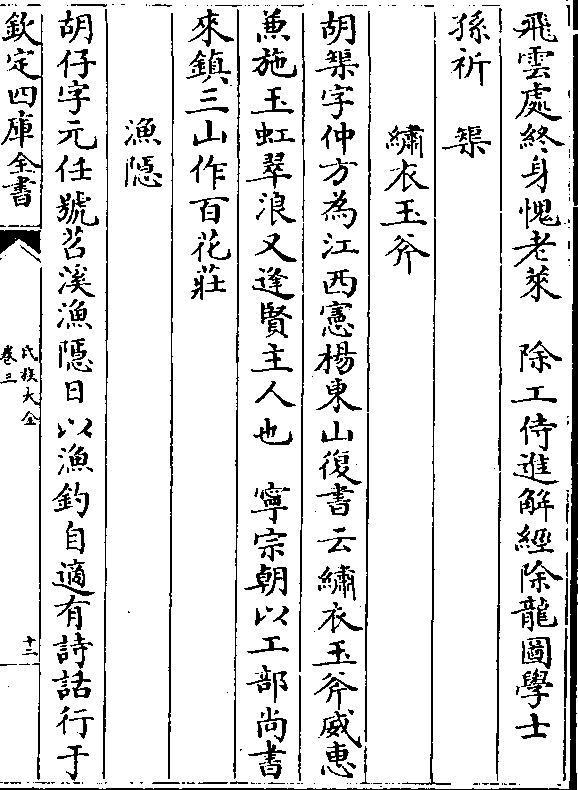 飛雲處終身愧老萊　除工侍進解經除龍圖學士
孫祈　榘
繡衣玉斧
胡榘字仲方為江西憲楊東山復書云繡衣玉斧威惠
兼施玉虹翠浪又逢賢主人也　寧宗朝以工部尚書
來鎮三山作百花莊
漁隱
胡仔字元任號苕溪漁隱日以漁釣自適有詩話行于
欽定四庫全書
氏族大全
卷三
十二